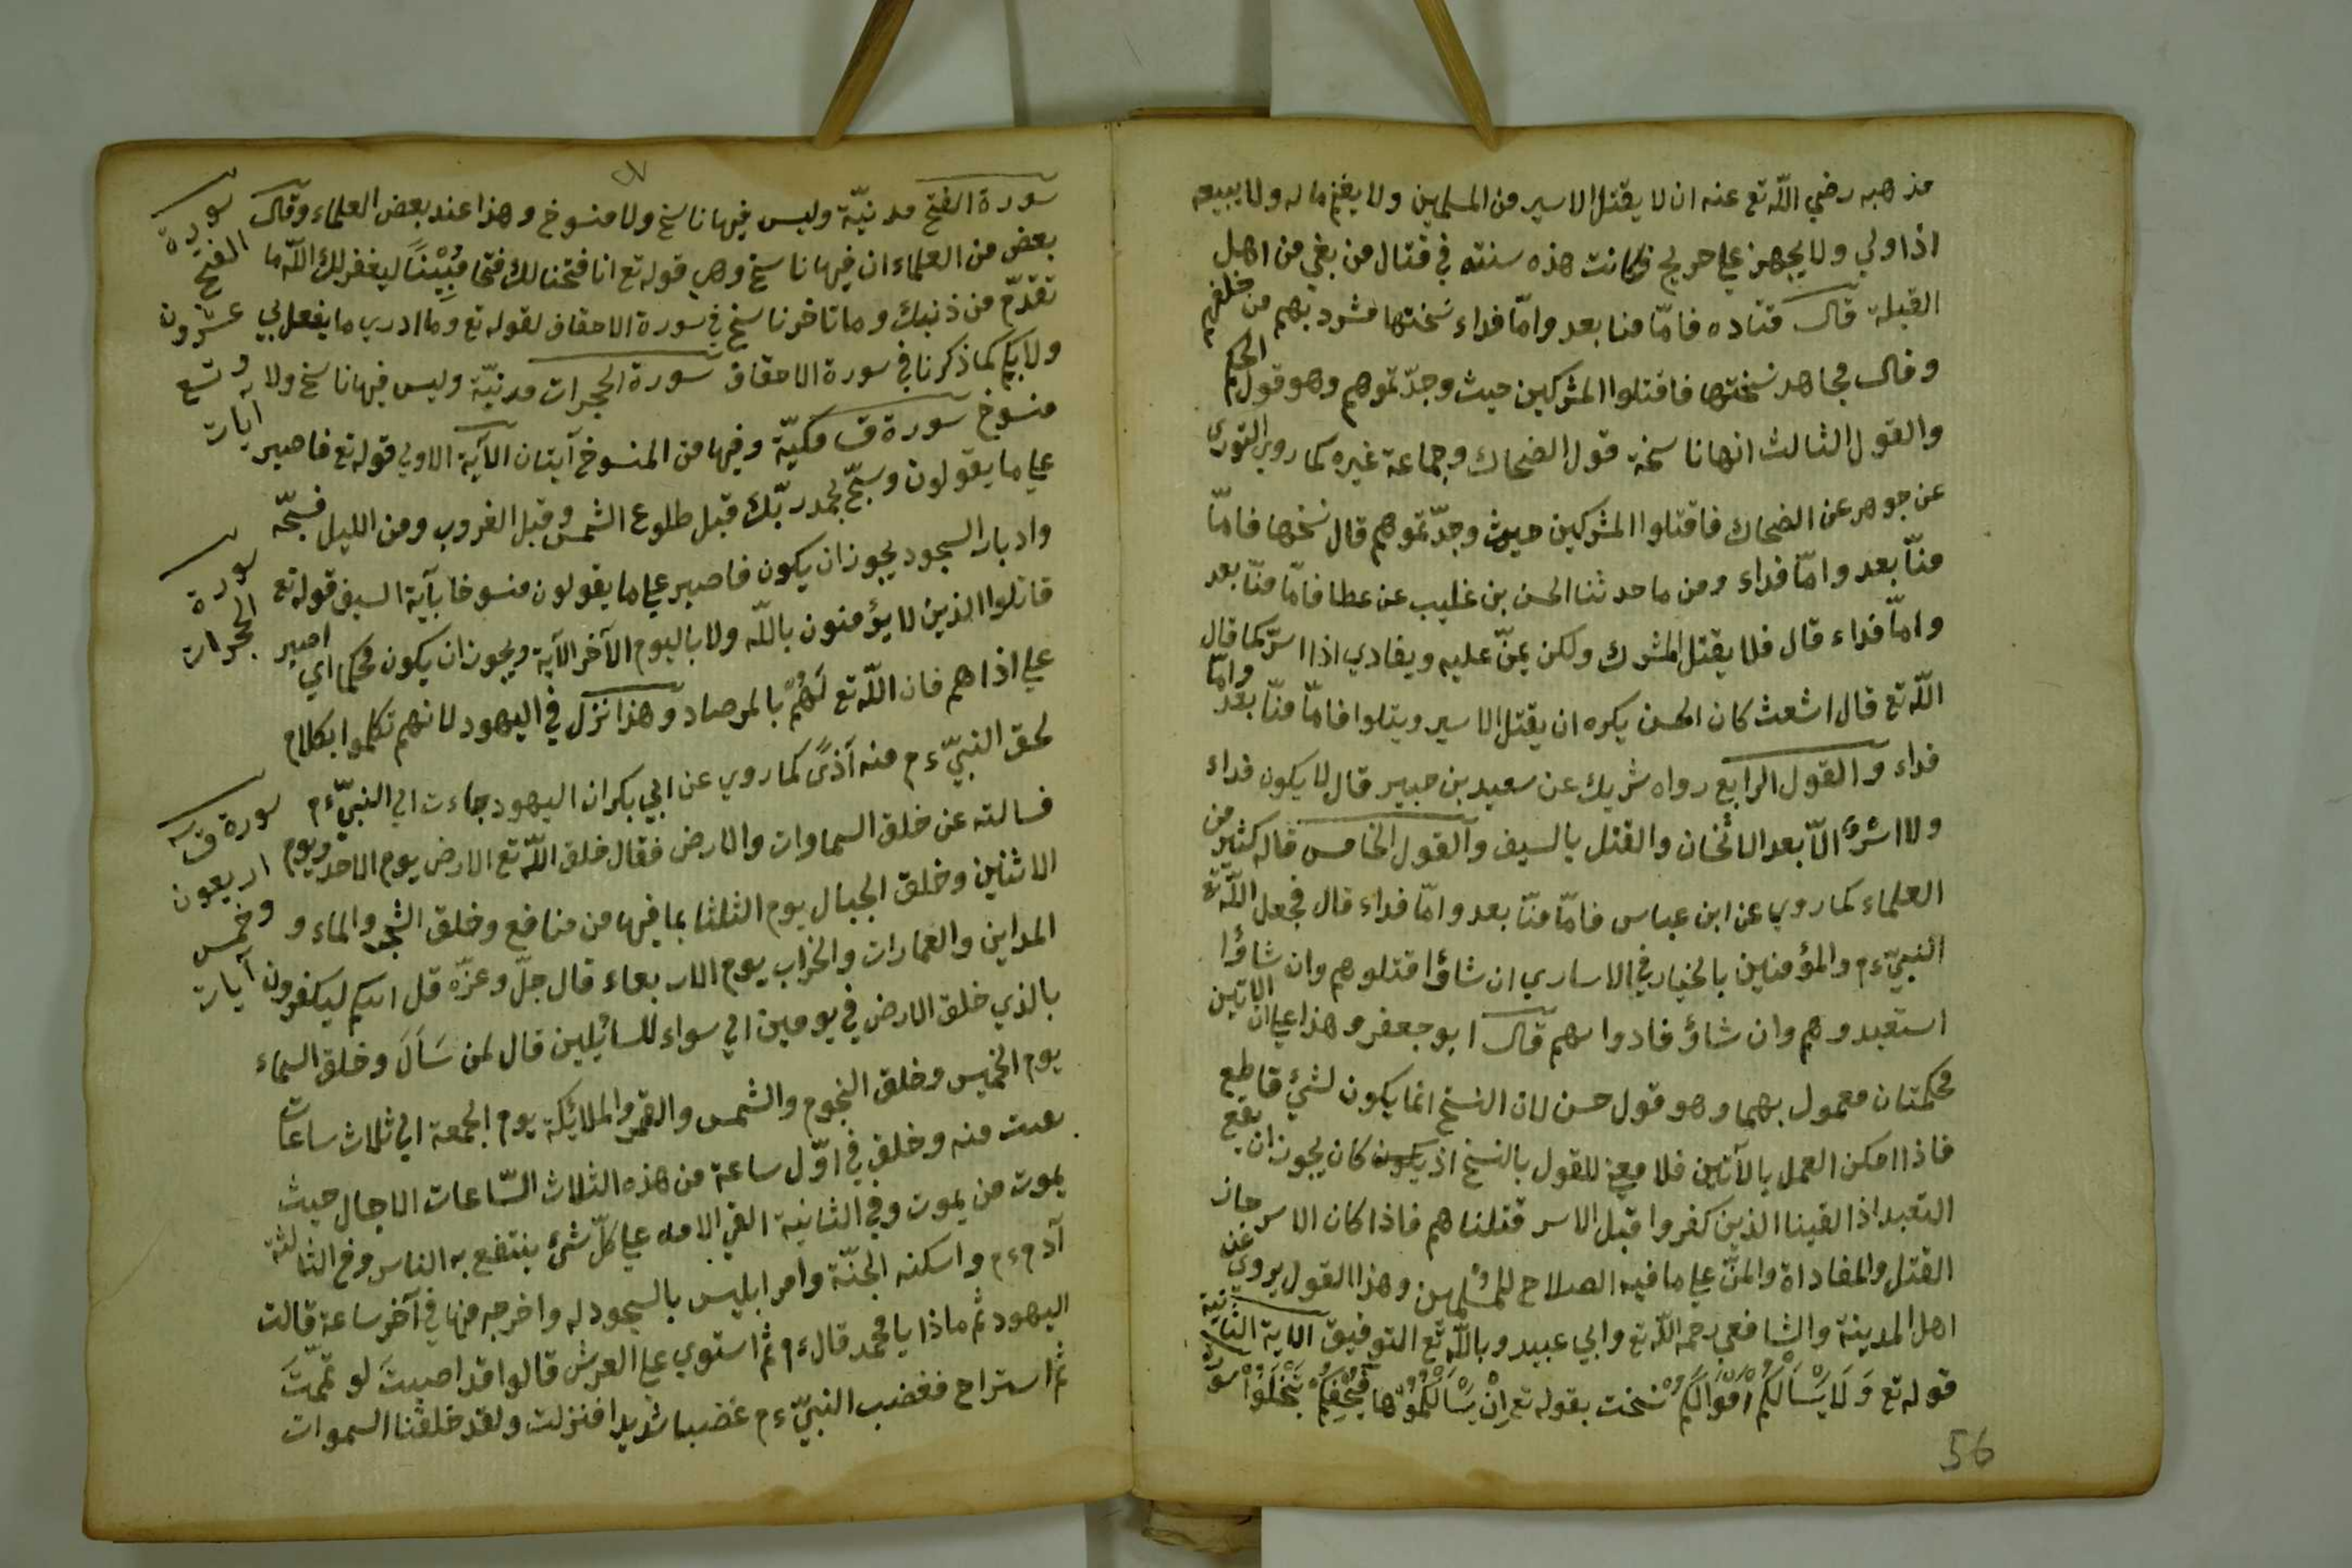 مذهبه رضي اللّه تع عنه ان لا يقتل الاسير من المسلمين ولا يغنم ماله ولا يبيعه
اذا ولي ولا يجهز علي جريح فكانت هذه سنته في قتال من بغي من اهل
القبلة قال قتاده فامّا منا بعد وامّا فداء نسختها فشرد بهم من خلفهم
وقال مجاهد نسختها فاقتلوا المشركين حيث وجدّتموهم وهو قول الحكم
والقول الثالث انها ناسخة قول الضحاك وجماعة غيره كما روي الثوري
عن جوهر عن الضحاك فاقتلوا المشركين حيث وجدّتموهم قال نسخها فامّا
منّا بعد وامّا فداء ومن ما حدثنا الحسن بن غليب عن عطا فامّا منّا بعد
وامّا فداء قال فلا يقتل المشرك ولكن يمنّ عليه ويفادي اذا اسرّ كما قال
اللّه تع قال اشعث كان الحسن يكره ان يقتل الاسير ويتلوا فامّا منّا بعد وامّا
فداء والقول الرابع رواه شريك عن سعيد بن جبير قال لا يكون فداء
ولا اسرٌ الّا بعد الاثخان والقتل بالسيف والقول الخامس قاله كثير من
العلماء كما روي عن ابن عباس فامّا منّا بعد وامّا فداء قال فجعل اللّه تع
النبيّ ءم والمؤمنين بالخيار في الاساري ان شاؤا قتلوهم وان شاؤا
استعبدوهم وان شاؤ فادوا بهم قال ابو جعفر وهذا علي ان الايتين
محكمتان معمول بهما وهو قول حسن لان النسخ انما يكون لشئ قاطع
فاذا امكن العمل بالآتين فلا معني للقول بالنسخ اذ يكون كان يجوز ان يقع
التعبد اذا لقينا الذين كفروا قبل الاسر قتلناهم فاذا كان الاسر جاز
القتل والمفاداة والمنّ علي ما فيه الصلاح للمسلمين وهذا القول يروي عن
اهل المدينة والشافعي رحمه اللّه تع وابي عبيد وباللّه تع التوفيق الاية الثانية
قوله تع وَلَا يَسْأَلْكُمْ اَمْوَالَكُمْ نسخت بقوله تع اِنْ يَسْأَلْكُمُوهَا فَيُحْفِكُمْ تَبْخَلُوا سورة
56
سورة الفتح مدنيّة وليس فيها ناسخ ولا منسوخ وهذا عند بعض العلماء وقال
بعض من العلماء ان فيها ناسخ وهي قوله تع انا فتحنا لك فتحا مُبِيْنًا ليغفر لك اللّه ما
تقدّم من ذنبك وما تاخر ناسخ في سورة الاحقاف لقوله تع وما ادري ما يفعل بي
ولا بكم كما ذكرنا في سورة الاحقاف سورة الحجرات مدنيّة وليس فيها ناسخ ولا
منسوخ سورة ق مكيّة وفيها من المنسوخ آيتان الآية الاولي قوله تع فاصبر
علي ما يقولون وسبّح بحمد ربّك قبل طلوع الشمس وقبل الغروب ومن الليل فسبّحه
وادبار السجود يجوز ان يكون فاصبر علي ما يقولون منسوخا بآية السيف قوله تع
قاتلوا الذين لا يؤمنون باللّه ولا باليوم الآخر الآية ويجوز ان يكون محكما اي اصبر
علي اذاهم فان اللّه تع لَهُمْ بالمرصاد وهذا نزل في اليهود لانهم تكلموا بكلام
لحق النبيّ ءم منه آذىً كما روي عن ابي بكر ان اليهود جاءت الي النبيّ ءم
فسالته عن خلق السماوات والارض فقال خلق اللّه تع الارض يوم الاحد ويوم
الاثنين وخلق الجبال يوم الثلثا بما فيها من منافع وخلق الشجر والماء و
المداين والعمارات والخراب يوم الاربعاء قال جلّ وعزّه قل ائنكم ليكفرون
بالذي خلق الارض في يومين الي سواء للسائلين قال لمن سَأَلَ وخلق السماء
يوم الخميس وخلق النجوم والشمس والقمر والملائكة يوم الجمعة الي ثلاث ساعات
بقيت منه وخلق في اوّل ساعة من هذه الثلاث السّاعات الاجال حيث
يموت من يموت وفي الثانية القي الامه علي كلّ شئ ينتفع به الناس وفي الثالثة
آدم ءم واسكنه الجنّة وامر ابليس بالسجود له واخرجه منها في آخر ساعة قالت
اليهود ثم ماذا يا محمد قال ءم ثم استوي علي العرش قالوا قد اصبتَ لو تممّتَ
ثم استراح فغضب النبيّ ءم غضبا شديدا فنزلت ولقد خلقنا السموات
سورة
الفتح
عشرون
وتسع
ايات
سورة
الحجرات
سورة ق
اربعون
وخمس
آيات